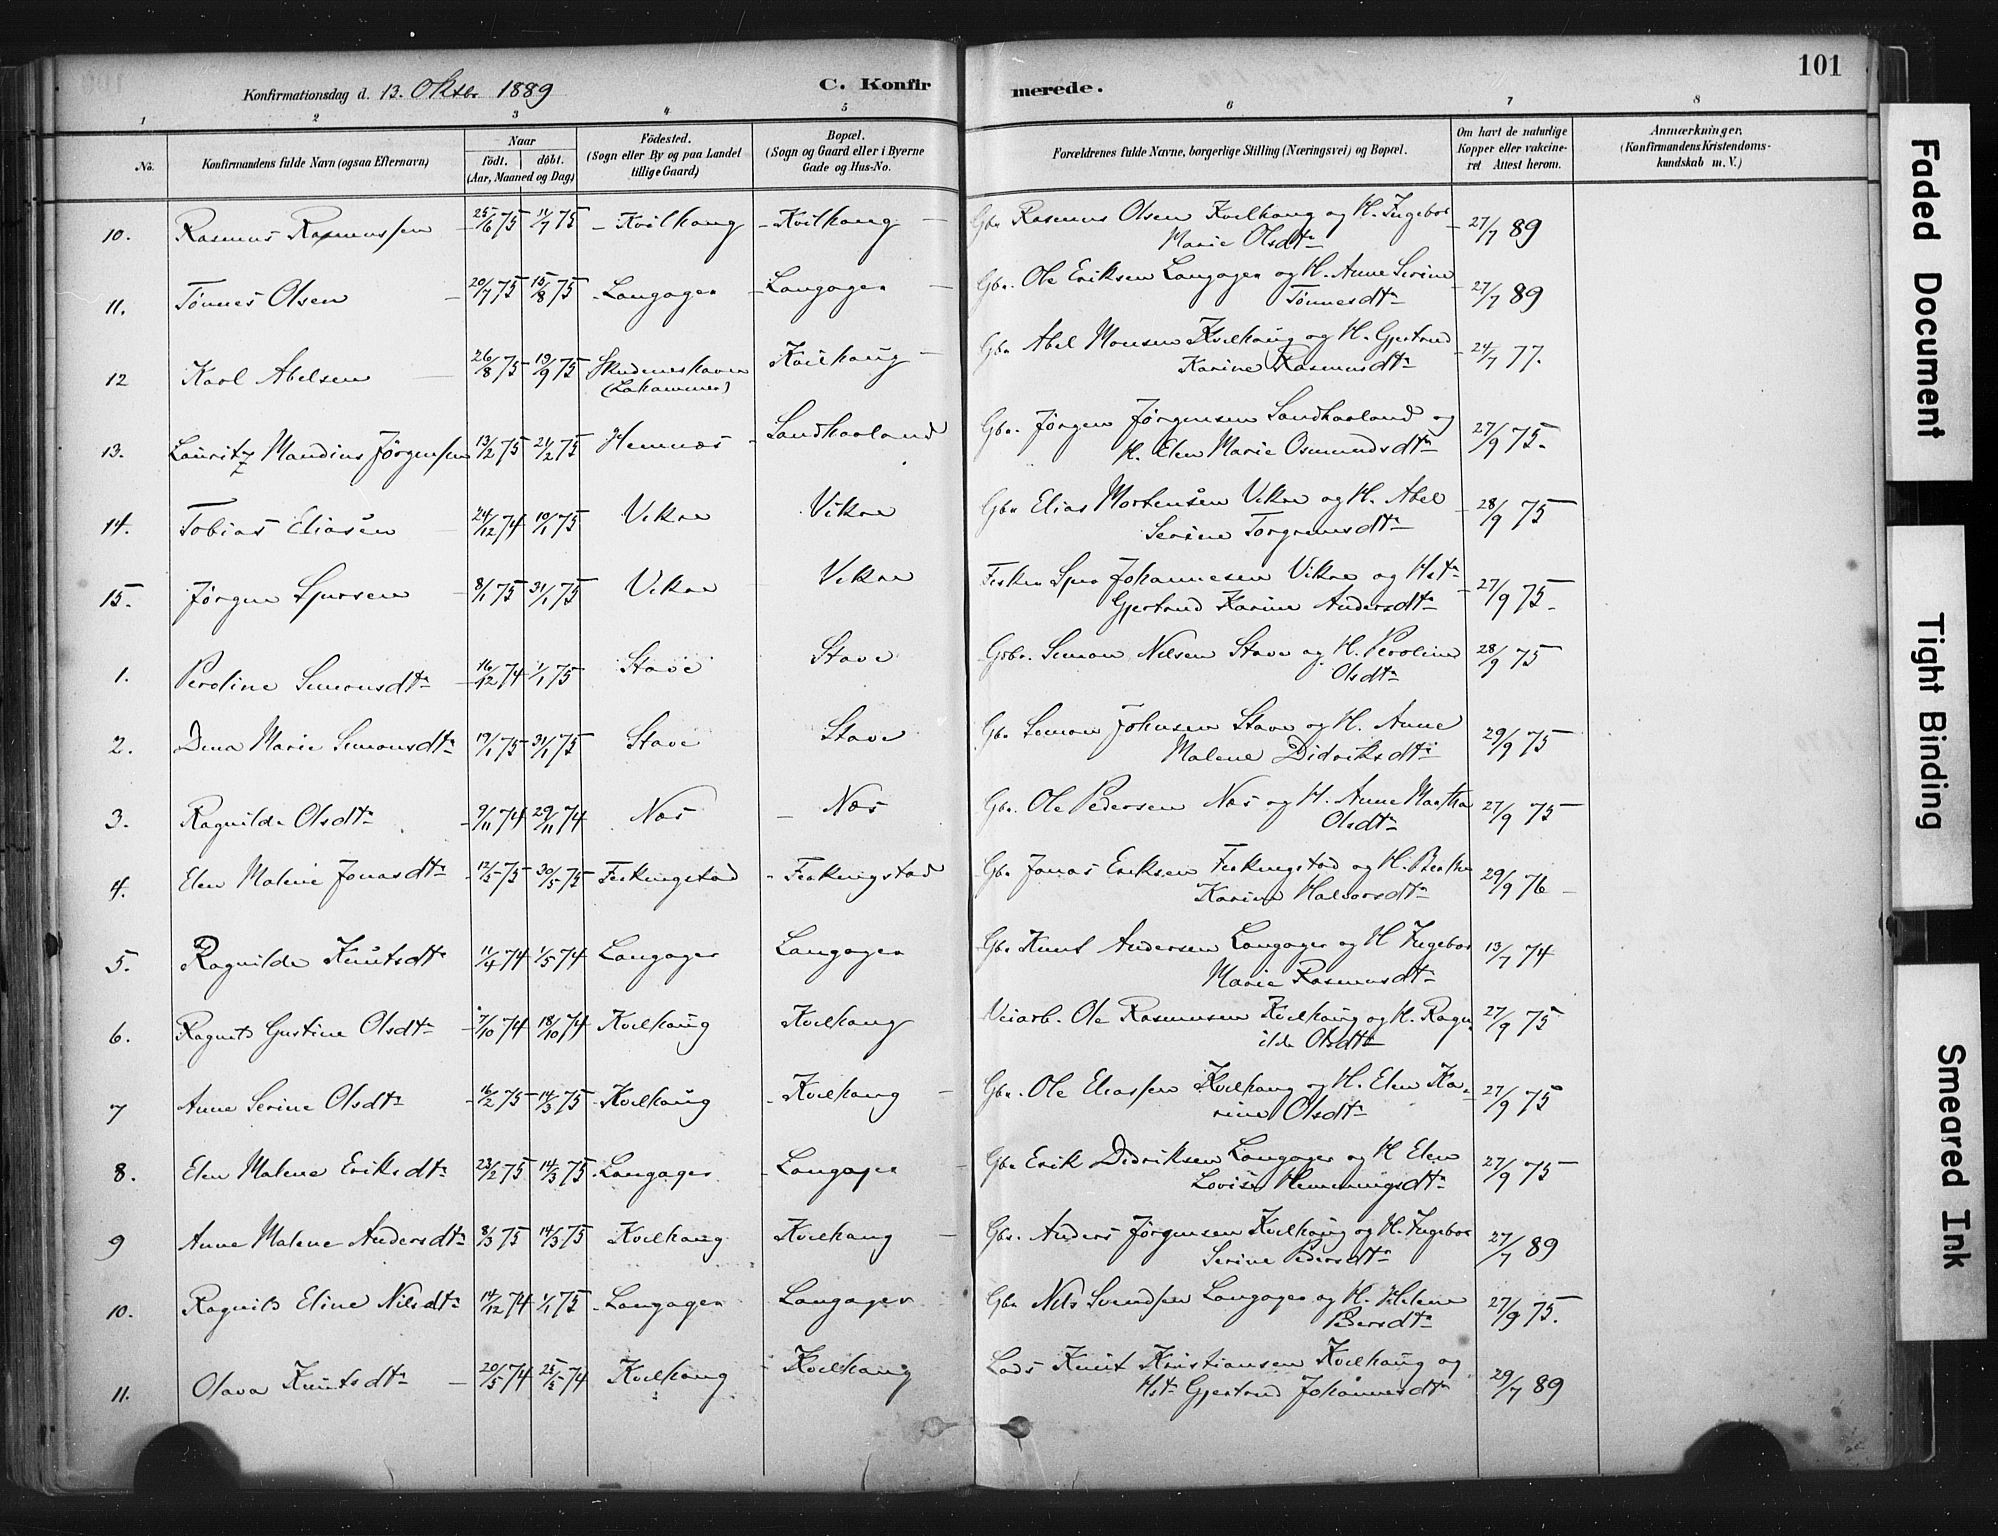 101
Konfirmationsdag d. 13. Oktbr 1889
C. Konfirmerede.
1 2 3 4 5 6 7 8
No.
Konfirmandens fulde Navn (ogsaa Efternavn)
Naar
födt. döbt.
(Aar, Maaned og Dag)
Födested.
(Sogn eller By og paa Landet
tillige Gaard)
Bopæl.
(Sogn og Gaard eller i Byerne
Gade og Hus-No.
Forældrenes fulde Navne, borgerlige Stilling (Næringsvei) og Bopæl.
Om havt de naturlige
Kopper eller vakcine-
ret Attest herom.
Anmærkninger,
(Konfirmandens Kristendoms-
kundskab m. V.)
10. Rasmus Rasmussen 25/6 75 11/7 75 - Kvilhaug - Kvilhaug - Gbr Rasmus Olsen Kvilhaug og H. Ingebor 27/7 89
Marie Olsdtr
11. Tønnes Olsen - 20/7 75 15/8 75 - Langager - Langager - Gbr. Ole Eriksen Langager og H. Anne Serine 27/7 89
Tønnesdtr
12 Karl Abelsen - 26/8 75 19/9 75 Skudeneshavn Kvilhaug - Gbr Abel Monsen Kvilhaug og H. Gjertrud 24/7 77.
(Lahammer) Karine Rasmusdtr
13. Lauritz Mandius Jørgensen 13/2 75 21/2 75 Hemnes - Sandhaaland Gbr. Jørgen Jørgensen Sandhaaland og 27/9 75.
H. Elen Marie Osmundsdtr
14. Tobias Eliasen - 24/12 74 10/1 75 Vikre Vikre Gbr Elias Mortensen Vikre og H. Abel 28/9 75
Serine Torgrimsdtr
15. Jørgen Spersen - 8/1 75 31/1 75 Vikre Vikre Fisker Sper Johannesen Vikre og Hst 27/9 75.
Gjertrud Karine Andersdtr
1. Peroline Simonsdtr - 16/12 74 1/1 75 Stave Stave Gbr. Simon Nilsen Stave og H. Peroline 28/9 75
Olsdtr
2. Dina Marie Simonsdtr 19/1 75 31/1 75 Stave Stave Gbr Simon Johnsen Stave og H. Anne 29/9 75
Malene Didriksdtr
3. Ragnilde Olsdtr - 9/11 74 29/11 74 Nes - Nes Gbr. Ole Pedersen Nes og H. Anne Martha 27/9 75
Olsdtr
4. Elen Maline Jonasdtr - 12/5 75 30/5 75 Ferkingstad - Ferkingstad Gbr Jonas Eriksen Ferkingstad og H. Berthe 29/9 76 -
Karine Halvorsdtr
5. Ragnilde Knutsdtr 11/4 74 1/5 74 Langager Langager Gbr Knut Andersen Langager og H Ingebor 13/7 74
Marie Rasmusdtr
6. Ragnild Gustine Olsdtr - 7/10 74 18/10 74 Kvilhaug Kvilhaug Veiarb. Ole Rasmussen Kvilhaug og H. Ragn- 27/9 75
ilde Olsdtr
7 Anne Serine Olsdtr - 16/2 75 14/3 75 Kvilhaug - Kvilhaug - Gbr. Ole Eliassen Kvilhaug og H. Elen Ka- 27/9 75
rine Olsdtr
8. Elen Malene Eriksdtr 23/2 75 14/3 75 Langager - Langager - Gbr Erik Didriksen Langager og H Elen 27/9 75
Lovise Hemmingsdtr
9 Anne Malene Andersdtr 8/3 75 14/3 75 Kvilhaug Kvilhaug - Gbr. Anders Jørgensen Kvilhaug og H. Ingebor 27/7 89
Serine Pedersdtr
10. Ragnild Eline Nilsdtr 14/12 74 1/1 75 - Langager Langager Gbr Nils Svendsen Langager og H. Helene 27/9 75.
Persdtr
11. Olava Knutsdtr - 20/5 74 25/5 74 Kvilhaug - Kvilhaug Lods Knut Kristiansen Kvilhaug og 29/7 89
Hst Gjertrud Johannesdtr
Faded Document
Tight Binding
Smeared Ink